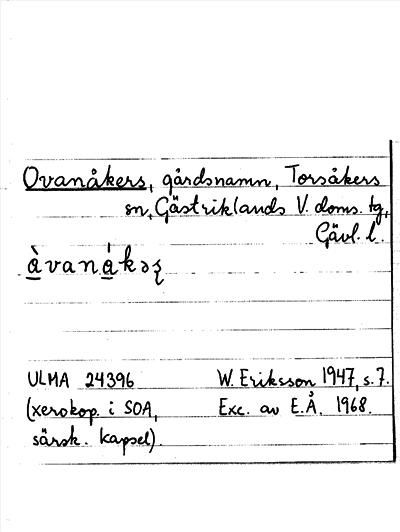 Ovanåkers, gårdsnamn, Torsåkers
sn, Gästriklands V. doms. tg,
Gävl. l.
ULMA 24396
(xerokop. i SOA,
särsk. kapsel).
W. Eriksson 1947, s. 7.
Exc. av E.Å. 1968.